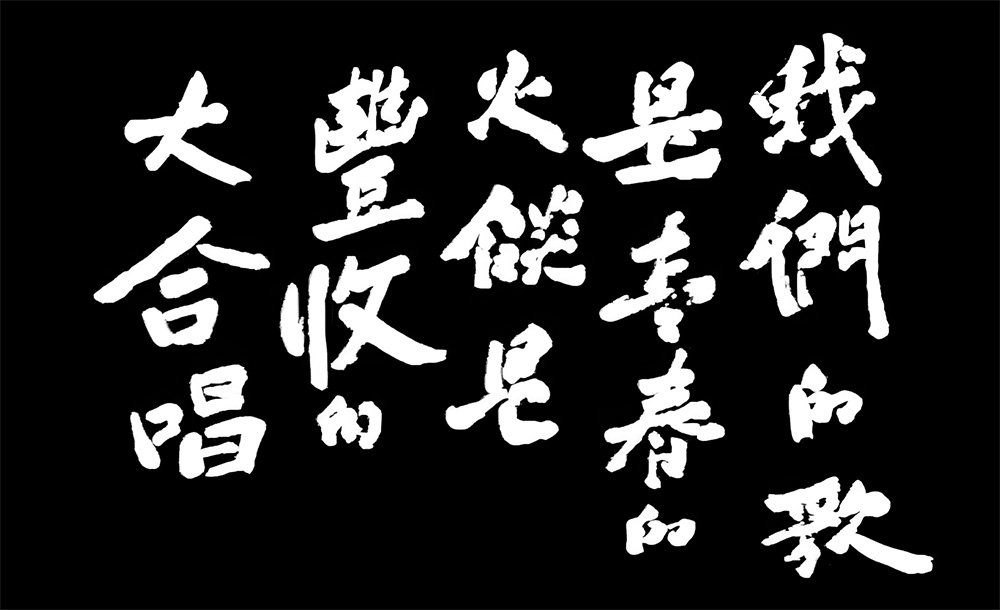 我們的歌
是青春的
火燄是
豐收的
大合唱